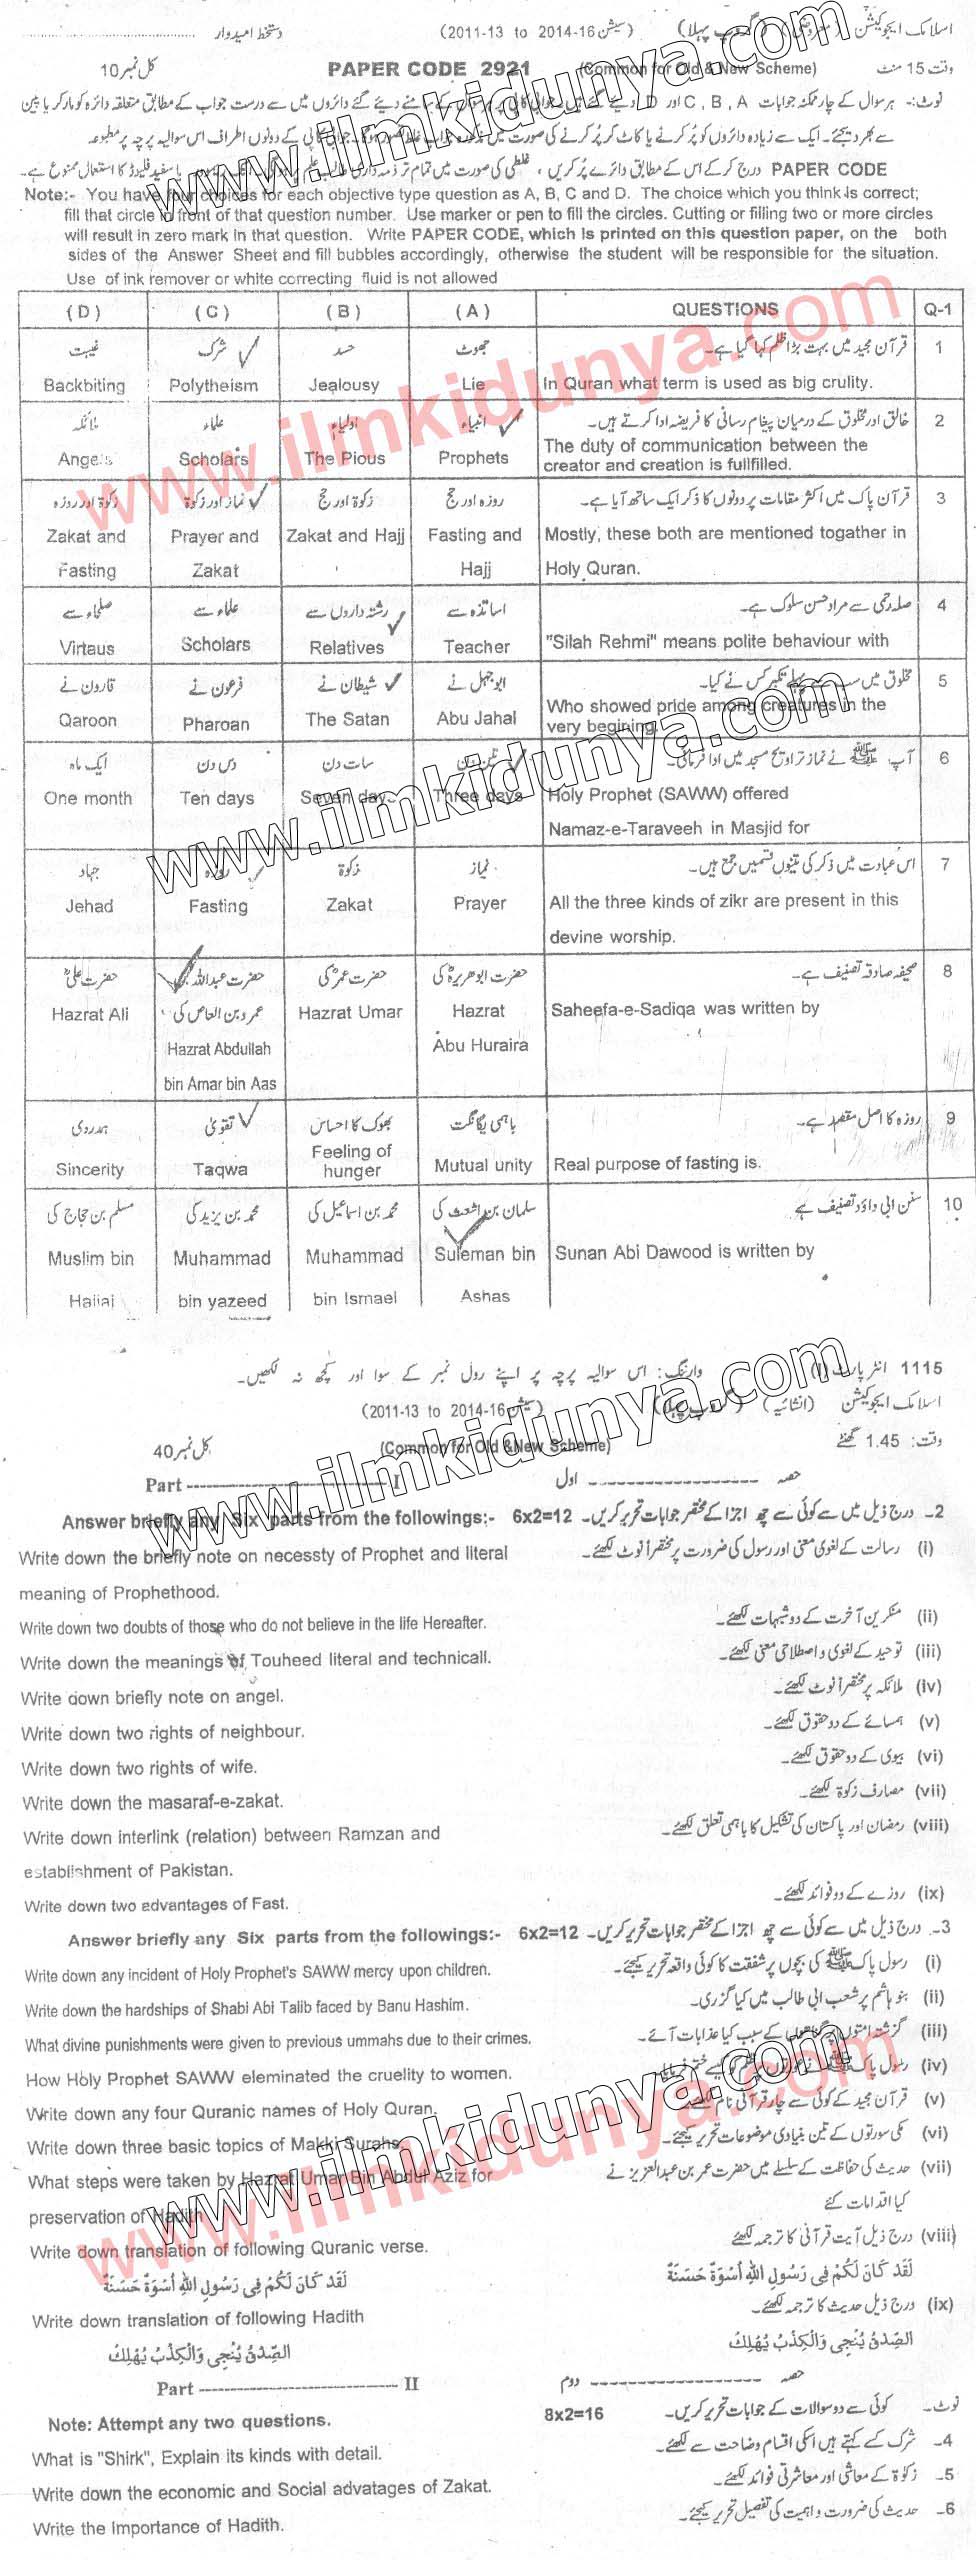 اسلامک ایجوکیشن (معروضی) (گروپ پہلا) (سیشن 2011-13 to 2014-16) دستخط امیدوار
وقت 15 منٹ (Common for Old & New Scheme) PAPER CODE 2921 کل نمبر 10
نوٹ:- ہر سوال کے چار ممکنہ جوابات A ، B ، C اور D دیئے گئے ہیں۔ جوابی کاپی پر ہر سوال کے سامنے دیئے گئے دائروں میں سے درست جواب کے مطابق متعلقہ دائرہ کو مارکر یا پین
سے بھر دیجئے۔ ایک سے زیادہ دائروں کو پُر کرنے یا کاٹ کر پُر کرنے کی صورت میں مذکورہ جواب غلط تصور ہوگا۔ جوابی کاپی کے دونوں اطراف اس سوالیہ پرچہ پر مطبوعہ
PAPER CODE درج کرکے اس کے مطابق دائرے پُر کریں، غلطی کی صورت میں تمام تر ذمہ داری طالب علم پر ہوگی۔ یا سفید فلیوڈ کا استعمال ممنوع ہے۔
Note:- You have four choices for each objective type question as A, B, C and D. The choice which you think is correct;
fill that circle in front of that question number. Use marker or pen to fill the circles. Cutting or filling two or more circles
will result in zero mark in that question. Write PAPER CODE, which is printed on this question paper, on the both
sides of the Answer Sheet and fill bubbles accordingly, otherwise the student will be responsible for the situation.
Use of ink remover or white correcting fluid is not allowed
(D) (C) (B) (A) QUESTIONS Q-1
غیبت شرک حسد جھوٹ قرآن مجید میں بہت بڑا ظلم کہا گیا ہے۔ 1
Backbiting Polytheism Jealousy Lie In Quran what term is used as big crulity.
ملائکہ علماء اولیاء انبیاء خالق اور مخلوق کے درمیان پیغام رسانی کا فریضہ ادا کرتے ہیں۔ 2
Angels Scholars The Pious Prophets The duty of communication between the
creator and creation is fullfilled.
زکوٰۃ اور روزہ نماز اور زکوٰۃ زکوٰۃ اور حج روزہ اور حج قرآن پاک میں اکثر مقامات پر دونوں کا ذکر ایک ساتھ آیا ہے۔ 3
Zakat and Prayer and Zakat and Hajj Fasting and Mostly, these both are mentioned togather in
Fasting Zakat Hajj Holy Quran.
صلحاء سے علماء سے رشتہ داروں سے اساتذہ سے صلہ رحمی سے مراد حسن سلوک ہے۔ 4
Virtaus Scholars Relatives Teacher "Silah Rehmi" means polite behaviour with
قارون نے فرعون نے شیطان نے ابوجہل نے مخلوق میں سب سے پہلے تکبر کس نے کیا۔ 5
Qaroon Pharoan The Satan Abu Jahal Who showed pride among creatures in the
very begining.
ایک ماہ دس دن سات دن تین دن آپ ﷺ نے نماز تراویح مسجد میں ادا فرمائی۔ 6
One month Ten days Seven days Three days Holy Prophet (SAWW) offered
Namaz-e-Taraveeh in Masjid for
جہاد روزہ زکوٰۃ نماز اس عبادت میں ذکر کی تینوں قسمیں جمع ہیں۔ 7
Jehad Fasting Zakat Prayer All the three kinds of zikr are present in this
devine worship.
حضرت علیؓ حضرت عبداللہ بن حضرت عمرؓ کی حضرت ابوھریرہؓ کی صحیفہ صادقہ تصنیف ہے۔ 8
Hazrat Ali عمرو بن العاص کی Hazrat Umar Hazrat Saheefa-e-Sadiqa was written by
Hazrat Abdullah Abu Huraira
bin Amar bin Aas
ہمدردی تقویٰ بھوک کا احساس باہمی یگانگت روزہ کا اصل مقصد ہے۔ 9
Sincerity Taqwa Feeling of hunger Mutual unity Real purpose of fasting is.
مسلم بن حجاج کی محمد بن یزید کی محمد بن اسماعیل کی سلمان بن اشعث کی سنن ابی داؤد تصنیف ہے 10
Muslim bin Muhammad Muhammad Suleman bin Sunan Abi Dawood is written by
Hajjaj bin yazeed bin Ismael Ashas
1115 انٹر پارٹ (I) وارننگ: اس سوالیہ پرچہ پر اپنے رول نمبر کے سوا اور کچھ نہ لکھیں۔
اسلامک ایجوکیشن (انشائیہ) (گروپ پہلا) (سیشن 2011-13 to 2014-16)
وقت: 1.45 گھنٹے (Common for Old & New Scheme) کل نمبر 40
Part ------------ I حصہ ------------ اول
Answer briefly any Six parts from the followings:- 6x2=12 2۔ درج ذیل میں سے کوئی سے چھ اجزا کے مختصر جوابات تحریر کریں۔
Write down the briefly note on necessty of Prophet and literal (i) رسالت کے لغوی معنی اور رسول کی ضرورت پر مختصراً نوٹ لکھئے۔
meaning of Prophethood.
Write down two doubts of those who do not believe in the life Hereafter. (ii) منکرین آخرت کے دو شبہات لکھئے۔
Write down the meanings of Touheed literal and technicall. (iii) توحید کے لغوی و اصطلاحی معنی لکھئے۔
Write down briefly note on angel. (iv) ملائکہ پر مختصراً نوٹ لکھئے۔
Write down two rights of neighbour. (v) ہمسائے کے دو حقوق لکھئے۔
Write down two rights of wife. (vi) بیوی کے دو حقوق لکھئے۔
Write down the masaraf-e-zakat. (vii) مصارف زکوٰۃ لکھئے۔
Write down interlink (relation) between Ramzan and (viii) رمضان اور پاکستان کی تشکیل کا باہمی تعلق لکھئے۔
establishment of Pakistan.
Write down two advantages of Fast. (ix) روزے کے دو فوائد لکھئے۔
Answer briefly any Six parts from the followings:- 6x2=12 3۔ درج ذیل میں سے کوئی سے چھ اجزا کے مختصر جوابات تحریر کریں۔
Write down any incident of Holy Prophet's SAWW mercy upon children. (i) رسول پاک ﷺ کی بچوں پر شفقت کا کوئی واقعہ تحریر کیجئے۔
Write down the hardships of Shabi Abi Talib faced by Banu Hashim. (ii) بنو ہاشم پر شعب ابی طالب میں کیا گزری۔
What divine punishments were given to previous ummahs due to their crimes. (iii) گزشتہ امتوں پر گناہوں کے سبب کیا عذابات آئے۔
How Holy Prophet SAWW eleminated the cruelity to women. (iv) رسول پاک ﷺ نے عورتوں پر ظلم کو کیسے ختم فرمایا
Write down any four Quranic names of Holy Quran. (v) قرآن مجید کے کوئی سے چار قرآنی نام لکھئے
Write down three basic topics of Makki Surahs. (vi) مکی سورتوں کے تین بنیادی موضوعات تحریر کیجئے۔
What steps were taken by Hazrat Umar Bin Abdul Aziz for (vii) حدیث کی حفاظت کے سلسلے میں حضرت عمر بن عبدالعزیز نے
preservation of Hadith کیا اقدامات کئے
Write down translation of following Quranic verse. (viii) درج ذیل آیت قرآنی کا ترجمہ لکھئے
لَقَدْ كَانَ لَكُمْ فِى رَسُولِ اللهِ أُسْوَةٌ حَسَنَةٌ لَقَدْ كَانَ لَكُمْ فِى رَسُولِ اللهِ أُسْوَةٌ حَسَنَةٌ
Write down translation of following Hadith (ix) درج ذیل حدیث کا ترجمہ لکھئے۔
الصِّدْقُ يُنْجِى وَالْكِذْبُ يُهْلِكُ الصِّدْقُ يُنْجِى وَالْكِذْبُ يُهْلِكُ
Part ------------ II حصہ ------------ دوم
Note: Attempt any two questions. 8x2=16 نوٹ۔ کوئی سے دو سوالات کے جوابات تحریر کریں۔
What is "Shirk", Explain its kinds with detail. 4۔ شرک کسے کہتے ہیں اسکی اقسام وضاحت سے لکھئے۔
Write down the economic and Social advatages of Zakat. 5۔ زکوٰۃ کے معاشی اور معاشرتی فوائد لکھئے۔
Write the Importance of Hadith. 6۔ حدیث کی ضرورت و اہمیت کی تفصیل تحریر کیجئے۔
www.ilmkidunya.com